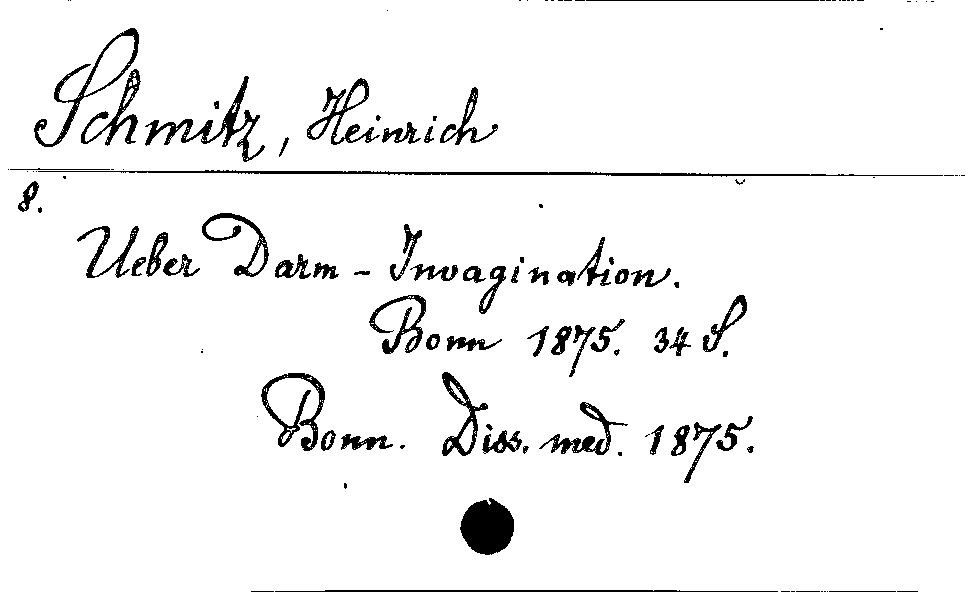 Schmitz, Heinrich
8.
Ueber Darm-Invagination.
Bonn 1875. 34 S.
Bonn. Diss. med. 1875.